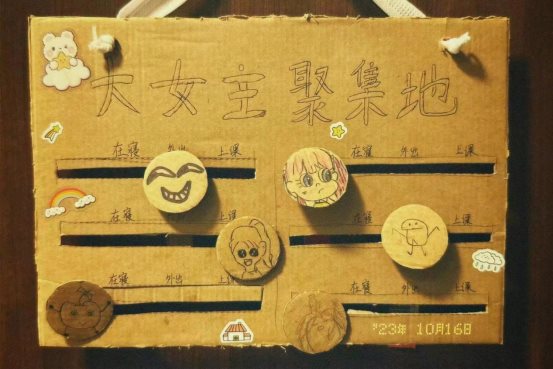 大女主聚集地
在寝 外出 上课 在寝 外出 上课
在寝 外出 上课 在寝 外出 上课
在寝 外出 上课 在寝 外出 上课
'23年 10月16日